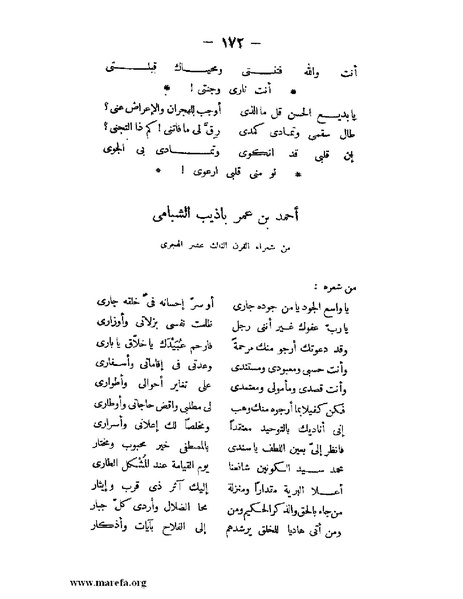 — ١٧٢ —
أنت والله فتنتى ومحياك قبلتى
* أنت نارى وجنتى ! *
يا بديع الحسن قل ما الذى أوجب الهجران والإعراض عنى؟
طال سقمى وتمادى كمدى رقّ لى ما فاتنى ! كم ذا التجنى؟
إن قلبى قد انكوى وتمادى بى الجوى
* نو منى قلبى ارعوى ! *
أحمد بن عمر باذيب الشبامى
من شعراء القرن الثالث عشر الهجرى
من شعره :
يا واسع الجود يا من جوده جارى أو سرّ إحسانه فىّ خلقه جارى
يا ربّ عفوك غير أننى رجل ظلت نفسى بزلاتى وأوزارى
وقد دعوتك أرجو منك مرحمةً فارحم عُبَيْدك يا خلاّق يا بارى
وأنت حسبى ومعبودى ومستندى وعدتى فى إقاماتى وأسفارى
وأنت قصدى ومأمولى ومعتمدى على تغاير أحوالى وأطوارى
فكن كفيلا بما أرجوه منك وهب لى مطلبى واقض حاجاتى وأوطارى
إنى أناديك بالتوحيد معتقداً ومخلصا لك إعلانى وأسرارى
فانظر إلىّ بعين اللطف يا سندى بالمصطفى خير محبوب ومختار
محمد سيد الكونين شافعنا يوم القيامة عند المُشكل الطارى
أعلا البرية مقداراً ومنزلة إليك آثر ذى قرب وإيثار
من جاء بالحق والذكر الحكيم ومن محا الضلال وأردى كلّ جبار
ومن أتى هاديا للخلق يرشدهم إلى الفلاح بآيات وأذكار
www.marefa.org